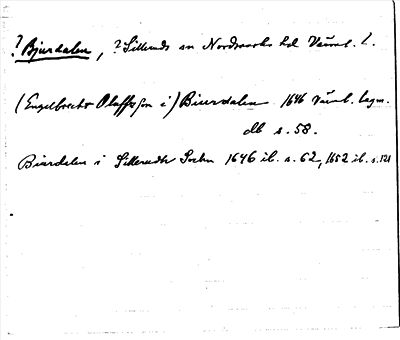 ? Bjurdalen, ? Silleruds sn Nordmarks hd Värml. l.
(Engelbrecht Olaffsson i) Biurdalen 1646 Värml. lagm.
db s. 58.
Biurdalen i Sillerudz Sochn 1646 ib. s. 62, 1652 ib. s. 121